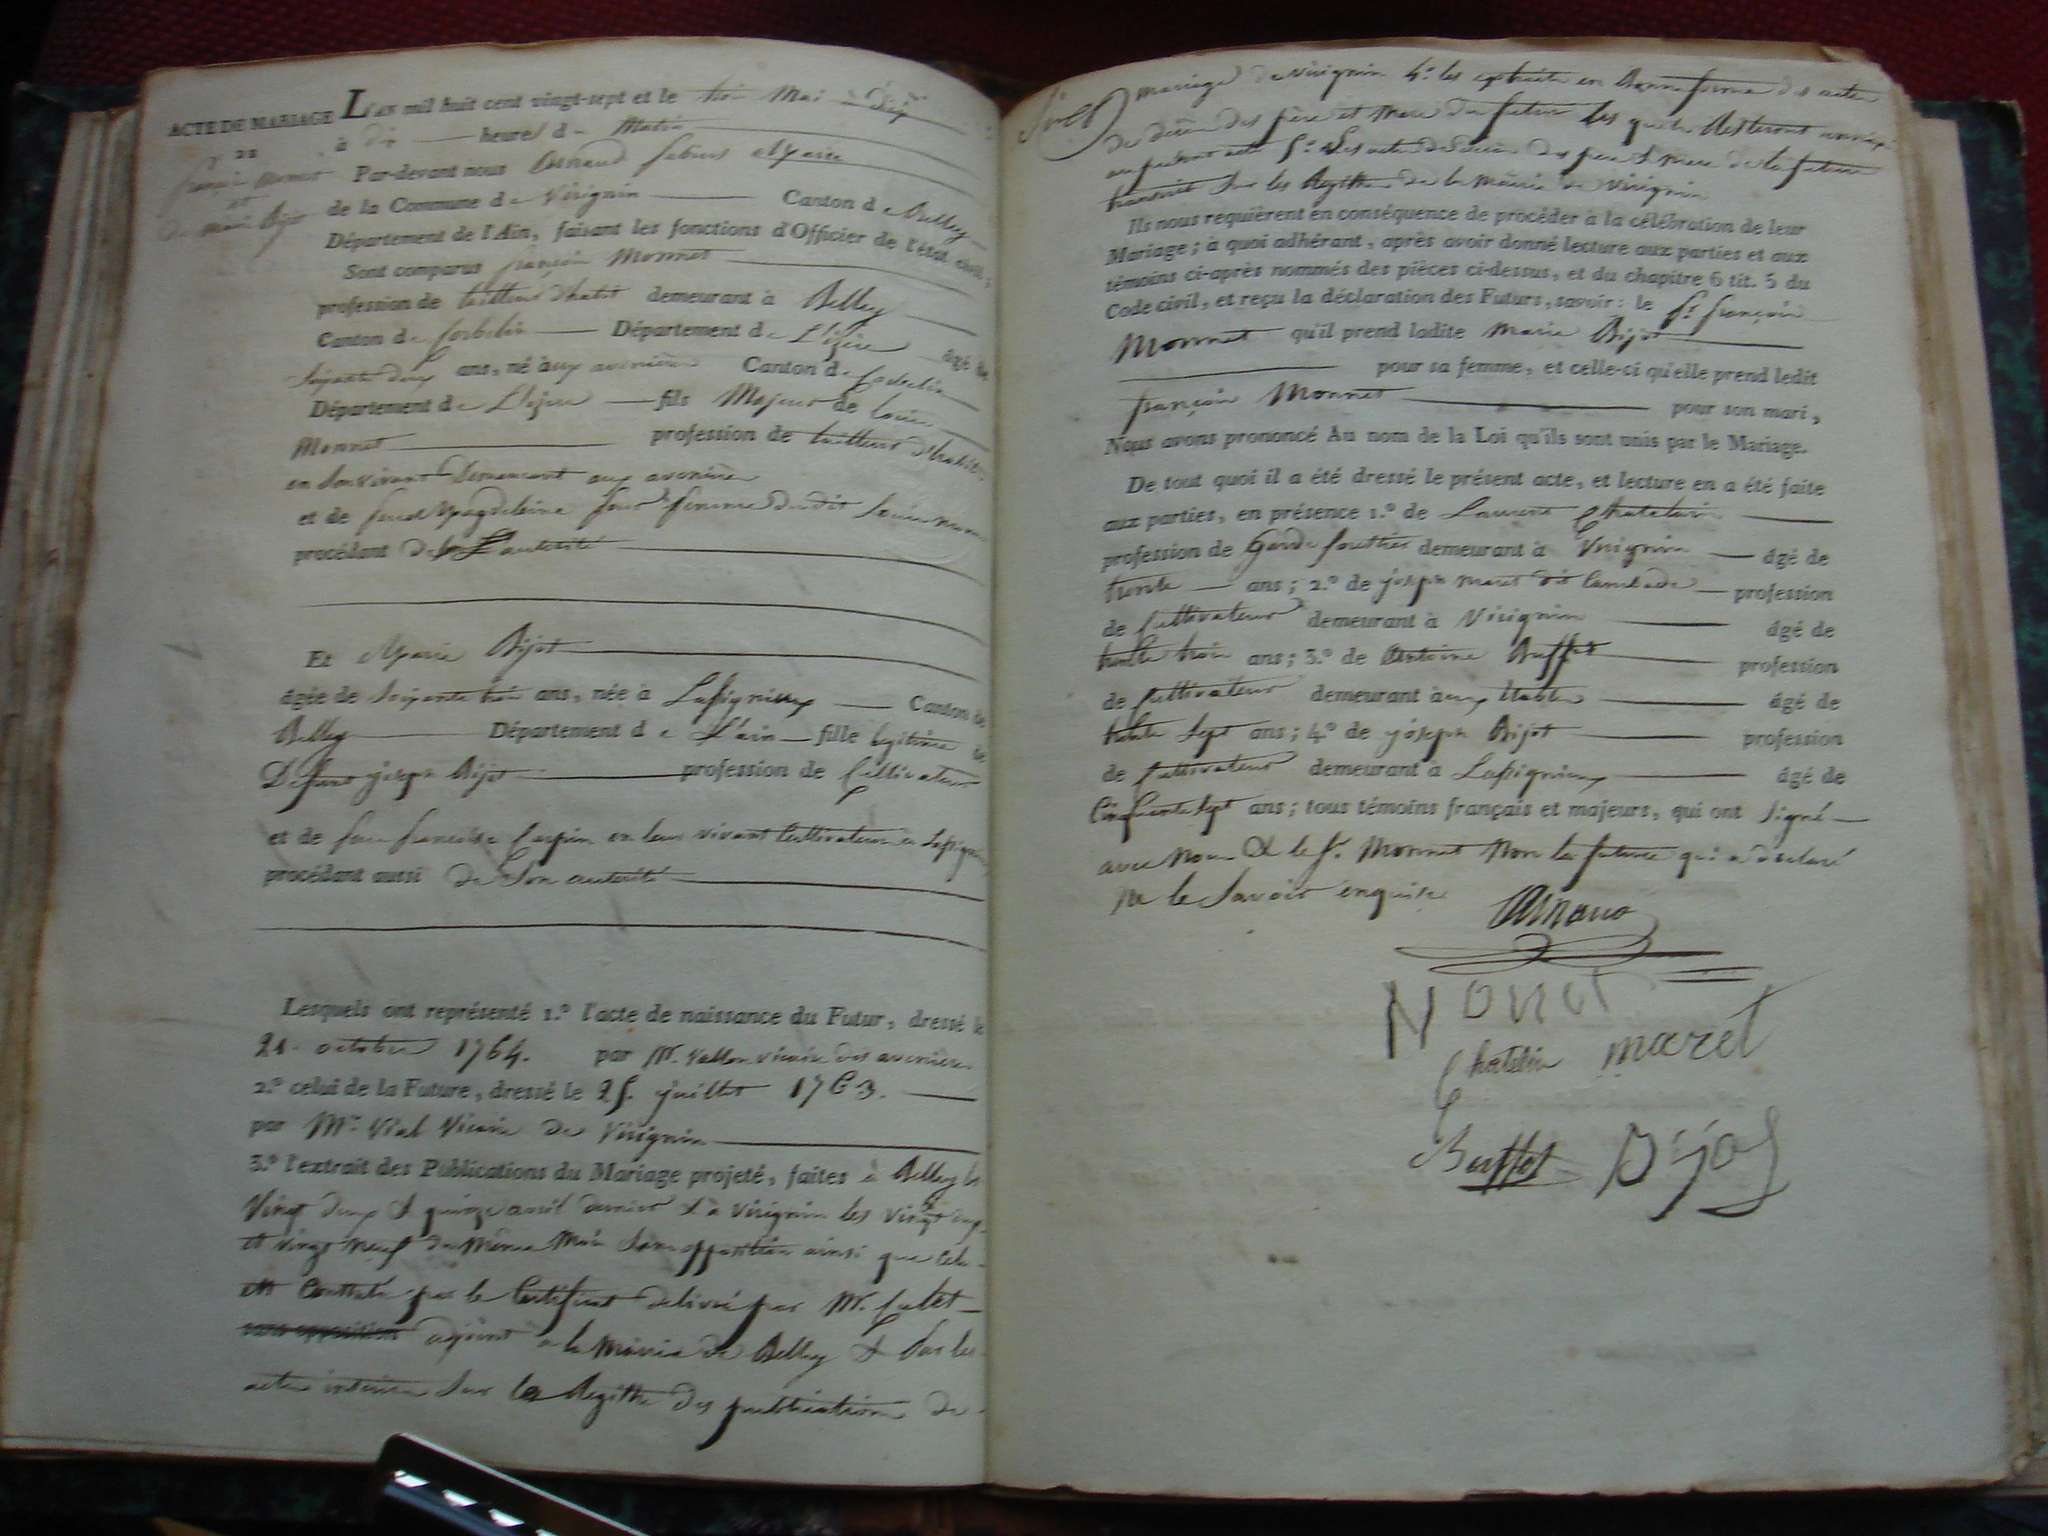 ACTE DE MARIAGE L'AN mil huit cent vingt-sept et le trois Mai à dix
à dix heures du Matin
françois Monnet
et
marie Bijot
Par-devant nous Arnaud maire
de la Commune de Virignin Canton de Belley
Département de l'Ain, faisant les fonctions d'Officier de l'état civil,
Sont comparus françois Monnet
profession de tailleur d'habit demeurant à Belley
Canton de Corbelin Département de L'izère âgé de
Soixante deux ans, né aux avenières Canton de Corbelin
Département de L'izère fils Majeur de Louis
Monnet profession de tailleur d'habits
en Son vivant Demeurant aux avenières
et de feue Magdeleine femme dudit Louis monnet
procédant de Son autorité
Et Marie Bijot
âgée de Soixante trois ans, née à Lassignieux Canton de
Belley Département de L'ain fille légitime de
Defunt joseph Bijot profession de Cultivateur
et de feue francoise Carpin en leur vivant Cultivateurs à Lassignieux
procédant aussi de Son autorité
Lesquels ont représenté 1.º l'acte de naissance du Futur, dressé le
21 octobre 1764. par Mr. Vallon vicaire des avenières
2.º celui de la Future, dressé le 25. juillet 1763.
par Mr. Vial Vicaire de Virignin
3.º l'extrait des Publications du Mariage projeté, faites à Belley les
Vingt deux & quinze avril dernier & à Virignin les vingt deux
et vingt neuf du Même Mois Sans opposition ainsi que cela
est Constaté par le Certificat delivré par Mr. Culet
sans opposition adjoint à la Mairie de Belley & par les
actes inscrits Sur le Registre des publications de
mariage de virignin 4.º les extraits en Bonne forme des actes
de décès des père et Mere du futur les quels resteront annexés
au présent acte 5.º Les actes de décès des père & mere de la future
transcrit Sur les Registres de la Mairie de Virignin
Ils nous requièrent en conséquence de procéder à la célébration de leur
Mariage ; à quoi adhérant, après avoir donné lecture aux parties et aux
témoins ci-après nommés des pièces ci-dessus, et du chapitre 6 tit. 5 du
Code civil, et reçu la déclaration des Futurs, savoir : le Sr. françois
Monnet qu'il prend ladite Marie Bijot
pour sa femme, et celle-ci qu'elle prend ledit
françois Monnet pour son mari,
Nous avons prononcé Au nom de la Loi qu'ils sont unis par le Mariage.
De tout quoi il a été dressé le présent acte, et lecture en a été faite
aux parties, en présence 1.º de Laurent Chatelain
profession de Garde forestier demeurant à Virignin âgé de
trente ans ; 2.º de joseph maret dit Cambade profession
de Cultivateur demeurant à Virignin âgé de
trente trois ans ; 3.º de Antoine Buffet profession
de Cultivateur demeurant aux Etables âgé de
trente Sept ans ; 4.º de joseph Bijot profession
de Cultivateur demeurant à Lassignieux âgé de
Cinquante Sept ans ; tous témoins français et majeurs, qui ont Signé
avec Nous & le Sr. Monnet Non la future qui a declaré
Ne le Savoir enquise
Arnaud
Monet
Chatelain maret
Buffet Bijot